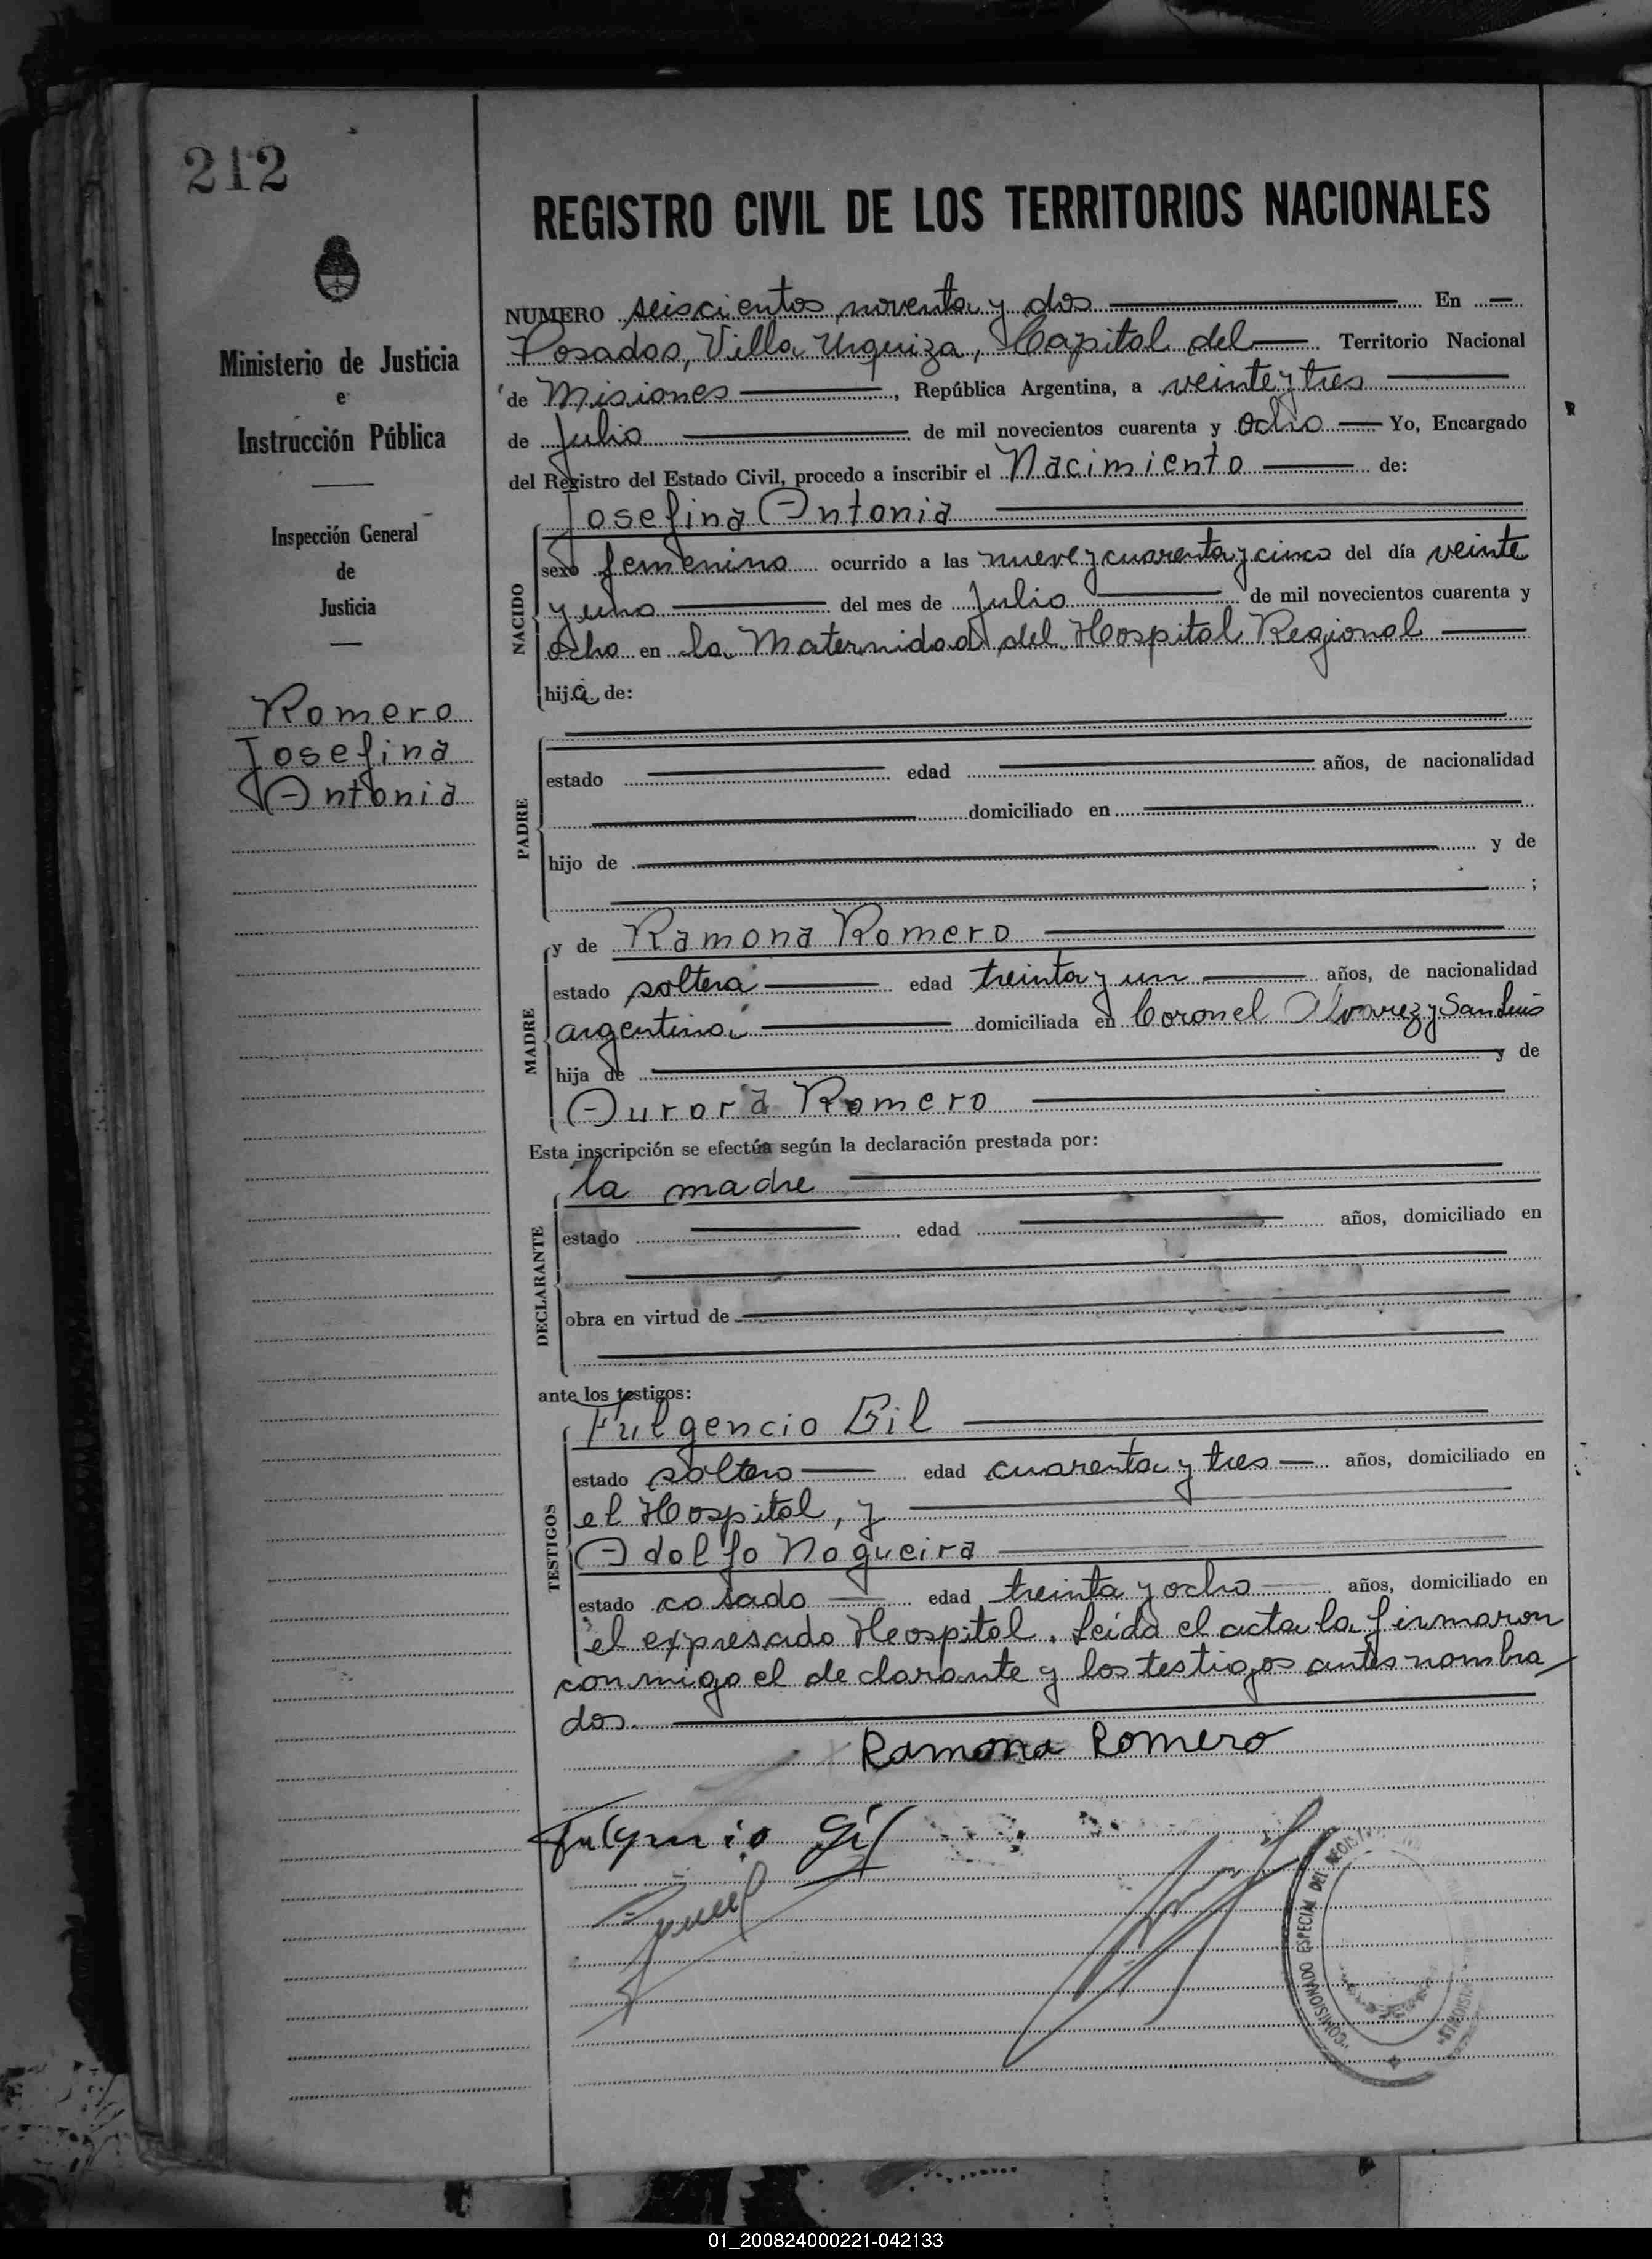 212
REGISTRO CIVIL DE LOS TERRITORIOS NACIONALES
Ministerio de Justicia
e
Instrucción Pública
Inspección General
de
Justicia
Romero
Josefina
Antonia
NUMERO seiscientos noventa y dos En
Posadas, Villa Urquiza, Capital del Territorio Nacional
de Misiones, República Argentina, a veinte y tres
de Julio de mil novecientos cuarenta y ocho Yo, Encargado
del Registro del Estado Civil, procedo a inscribir el Nacimiento de:
Josefina Antonia
NACIDO
sexo femenino ocurrido a las nueve y cuarenta y cinco del día veinte
y uno del mes de Julio de mil novecientos cuarenta y
ocho en la Maternidad del Hospital Regional
hija de:
PADRE
estado edad años, de nacionalidad
domiciliado en
hijo de y de
;
MADRE
y de Ramona Romero
estado soltera edad treinta y un años, de nacionalidad
argentina domiciliada en Coronel Alvarez y San Luis
hija de y de
Aurora Romero
Esta inscripción se efectúa según la declaración prestada por:
DECLARANTE
la madre
estado edad años, domiciliado en
obra en virtud de
ante los testigos:
TESTIGOS
Fulgencio Gil
estado soltero edad cuarenta y tres años, domiciliado en
el Hospital, y
Adolfo Nogueira
estado casado edad treinta y ocho años, domiciliado en
el expresado Hospital. Leída el acta la firmaron
conmigo el declarante y los testigos antes nombra
dos.
Ramona Romero
Fulgencio Gil
COMISIONADO ESPECIAL DEL REGIST
MISIONES
01_200824000221-042133